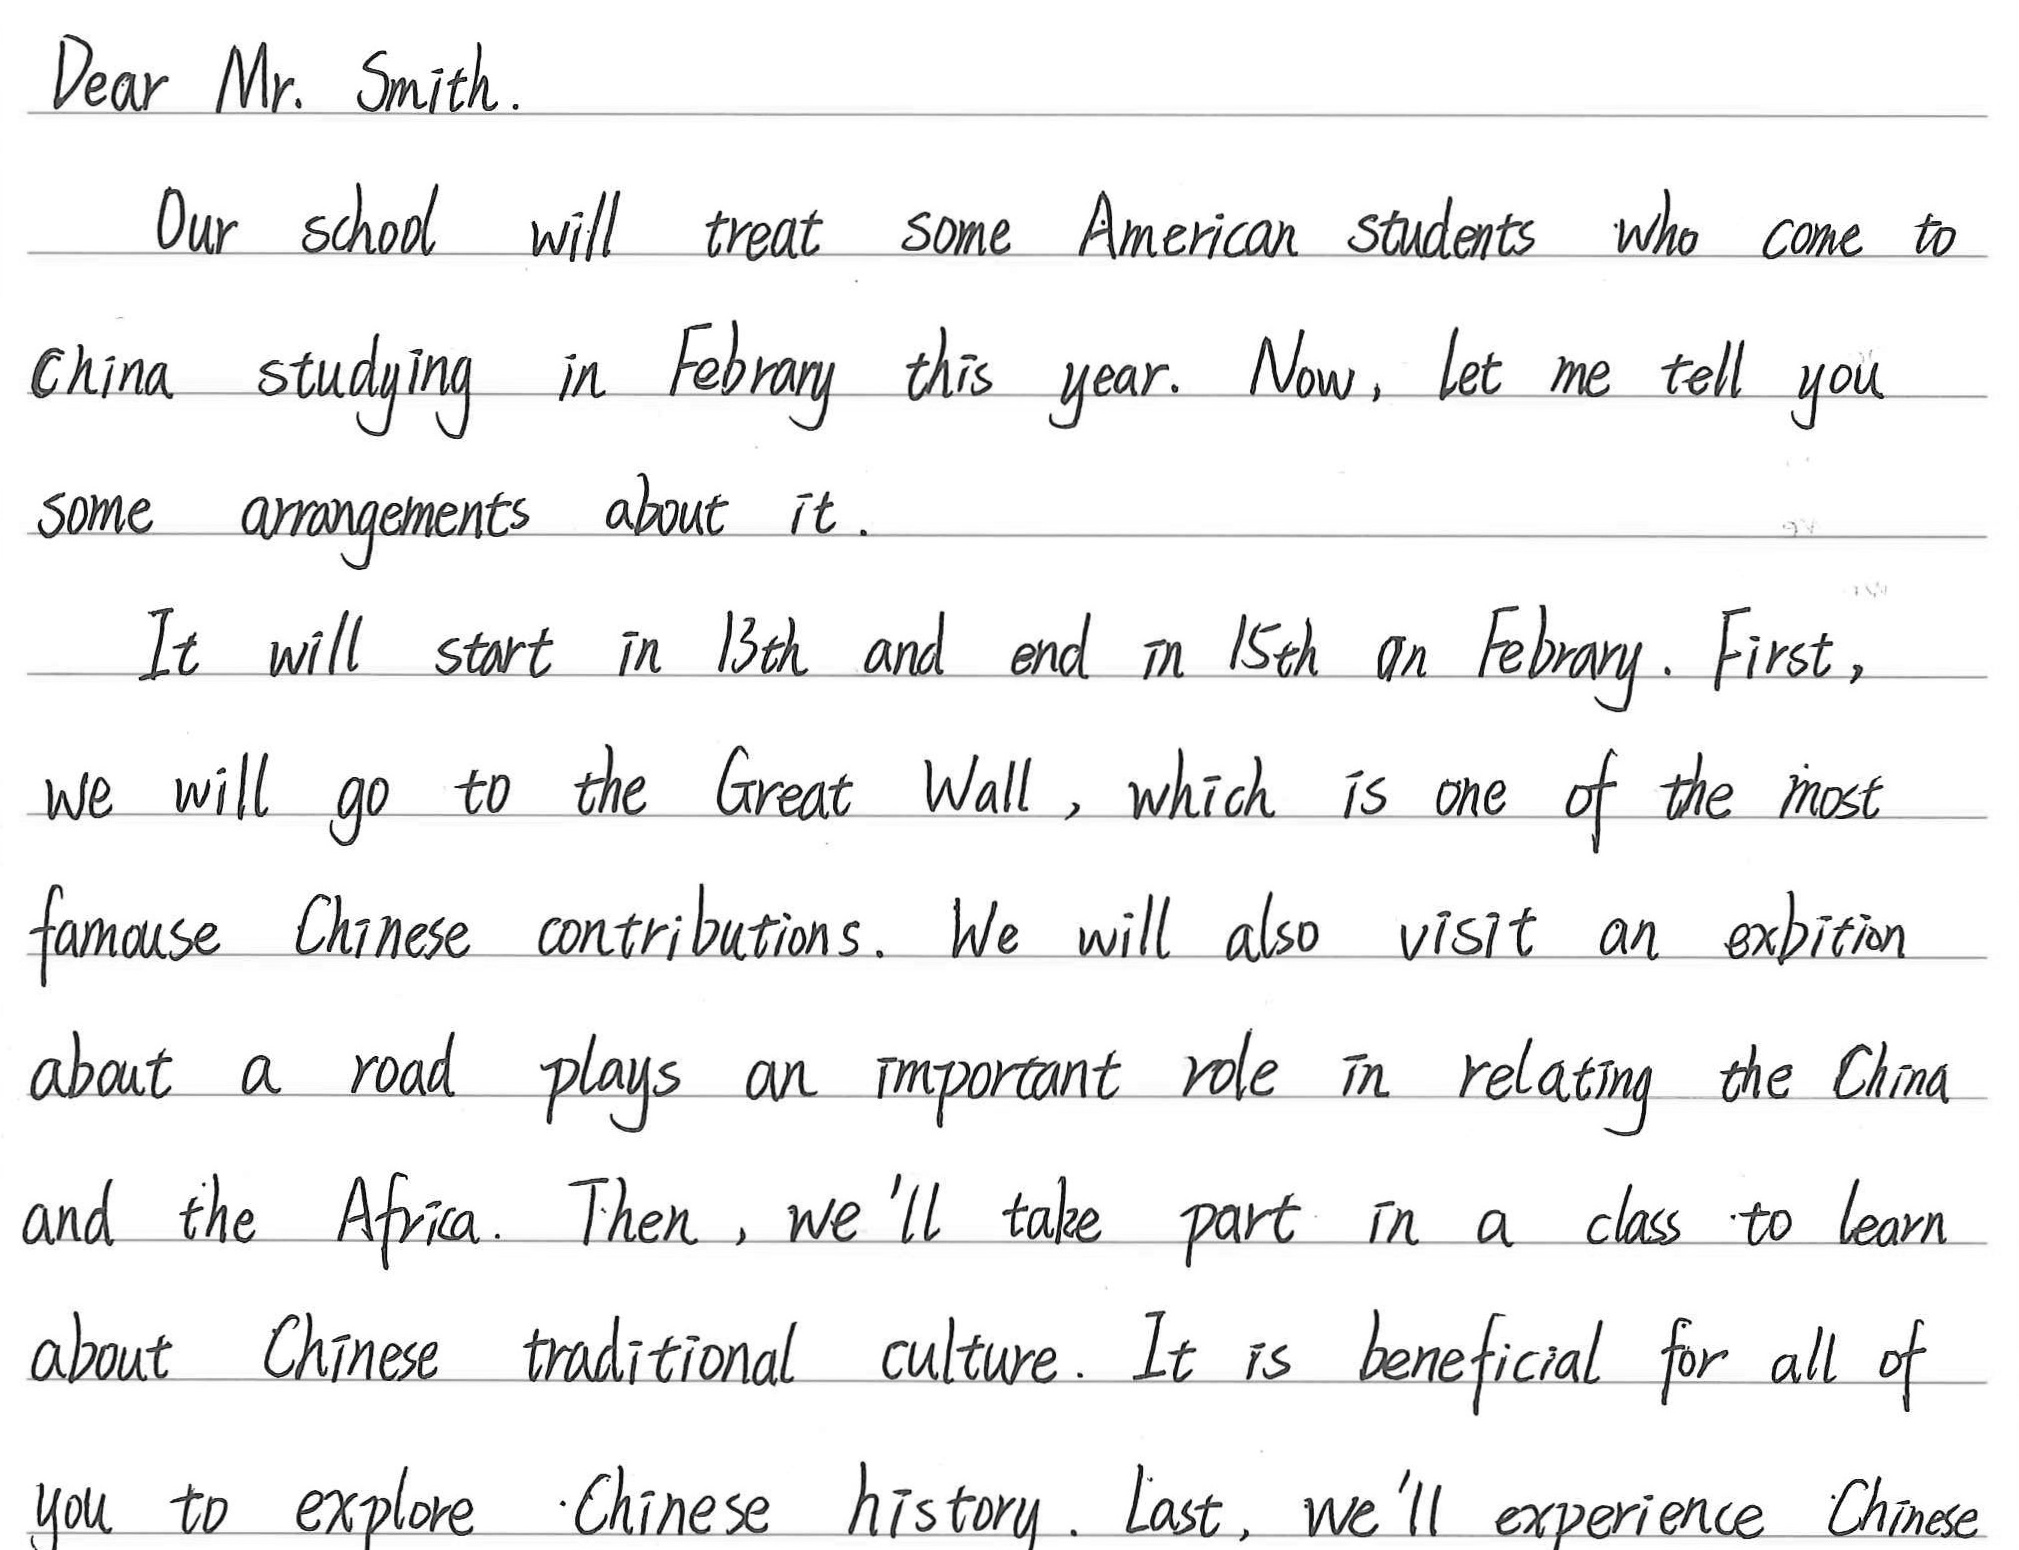 Dear Mr. Smith.
Our school will treat some American students who come to
China studying in Febrary this year. Now, let me tell you
some arrangements about it.
It will start in 13th and end in 15th an Febrary. First,
we will go to the Great Wall, which is one of the most
famouse Chinese contributions. We will also visit an exbition
about a road plays an important role in relating the China
and the Africa. Then, we'll take part in a class to learn
about Chinese traditional culture. It is beneficial for all of
you to explore Chinese history. Last, we'll experience Chinese